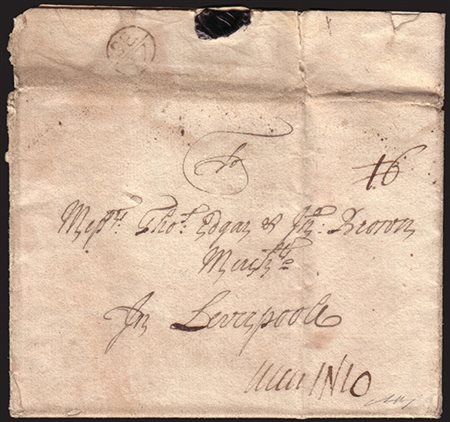 To
16
Mess.rs Tho.s Edgar & Jn.o Brown
Merch.ts
In Leverpoole